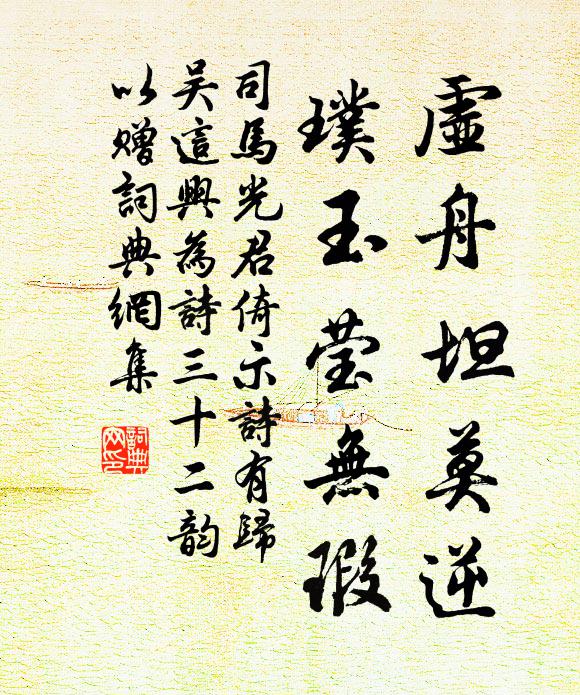 虛舟坦莫逆
璞玉莹無瑕
司馬光君倚示詩有歸
吳這興為詩三十二韵
以贈詞典網集
詞典
网印